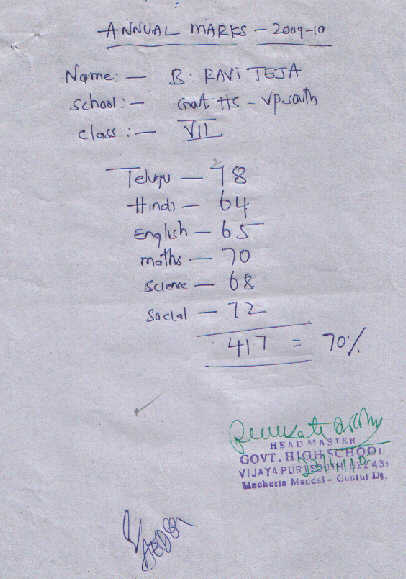 ANNUAL MARKS - 2009-10
Name: - B. RAVI TEJA
School: - Govt HS - VP south
class: - VII
Telugu - 78
Hindi - 64
English - 65
maths - 70
Science - 68
Social - 72
417 = 70%
HEADMASTER
GOVT. HIGH SCHOOL
VIJAYAPURI
Macherla Mandal - Guntur Dt.